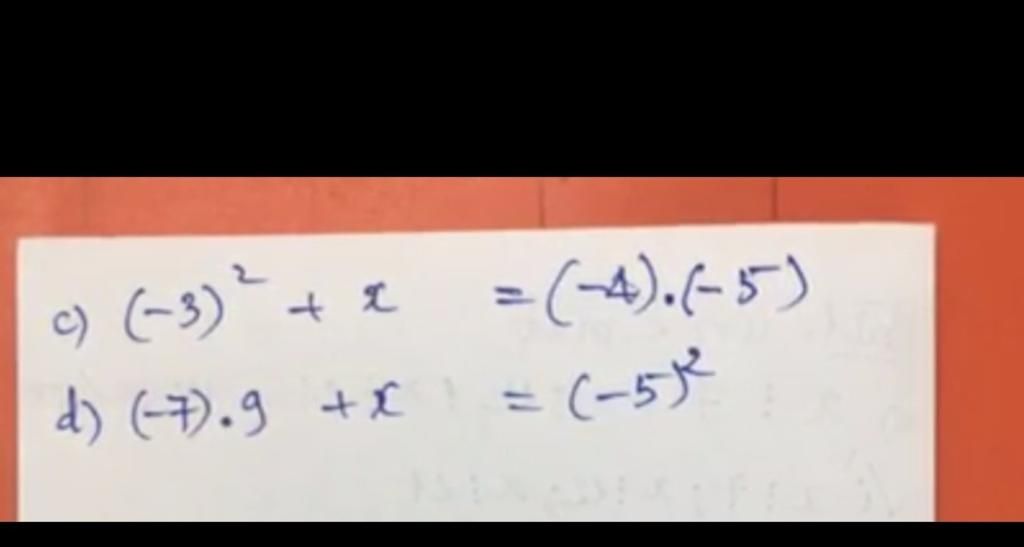 c) (-3)² + x = (-4).(-5)
d) (-7).9 + x = (-5)²